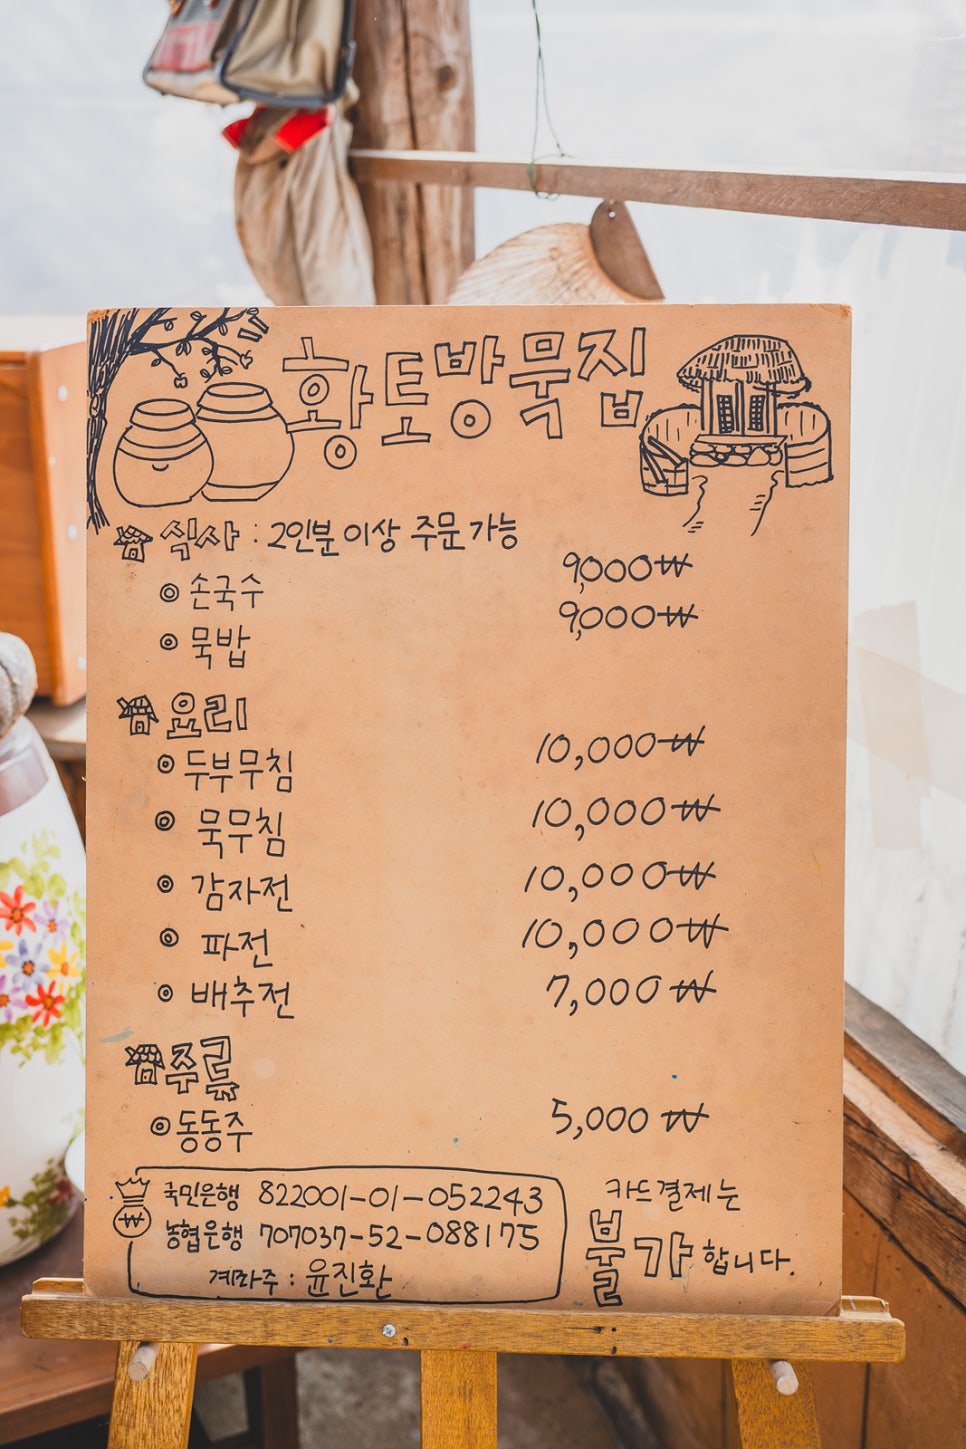 황토방묵집
식사 : 2인분 이상 주문 가능
◎ 손국수 9,000₩
◎ 묵밥 9,000₩
요리
◎ 두부무침 10,000₩
◎ 묵무침 10,000₩
◎ 감자전 10,000₩
◎ 파전 10,000₩
◎ 배추전 7,000₩
주류
◎ 동동주 5,000 ₩
₩
국민은행 822001-01-052243
농협은행 707037-52-088175
계좌주 : 윤진환
카드결제는
불가합니다.